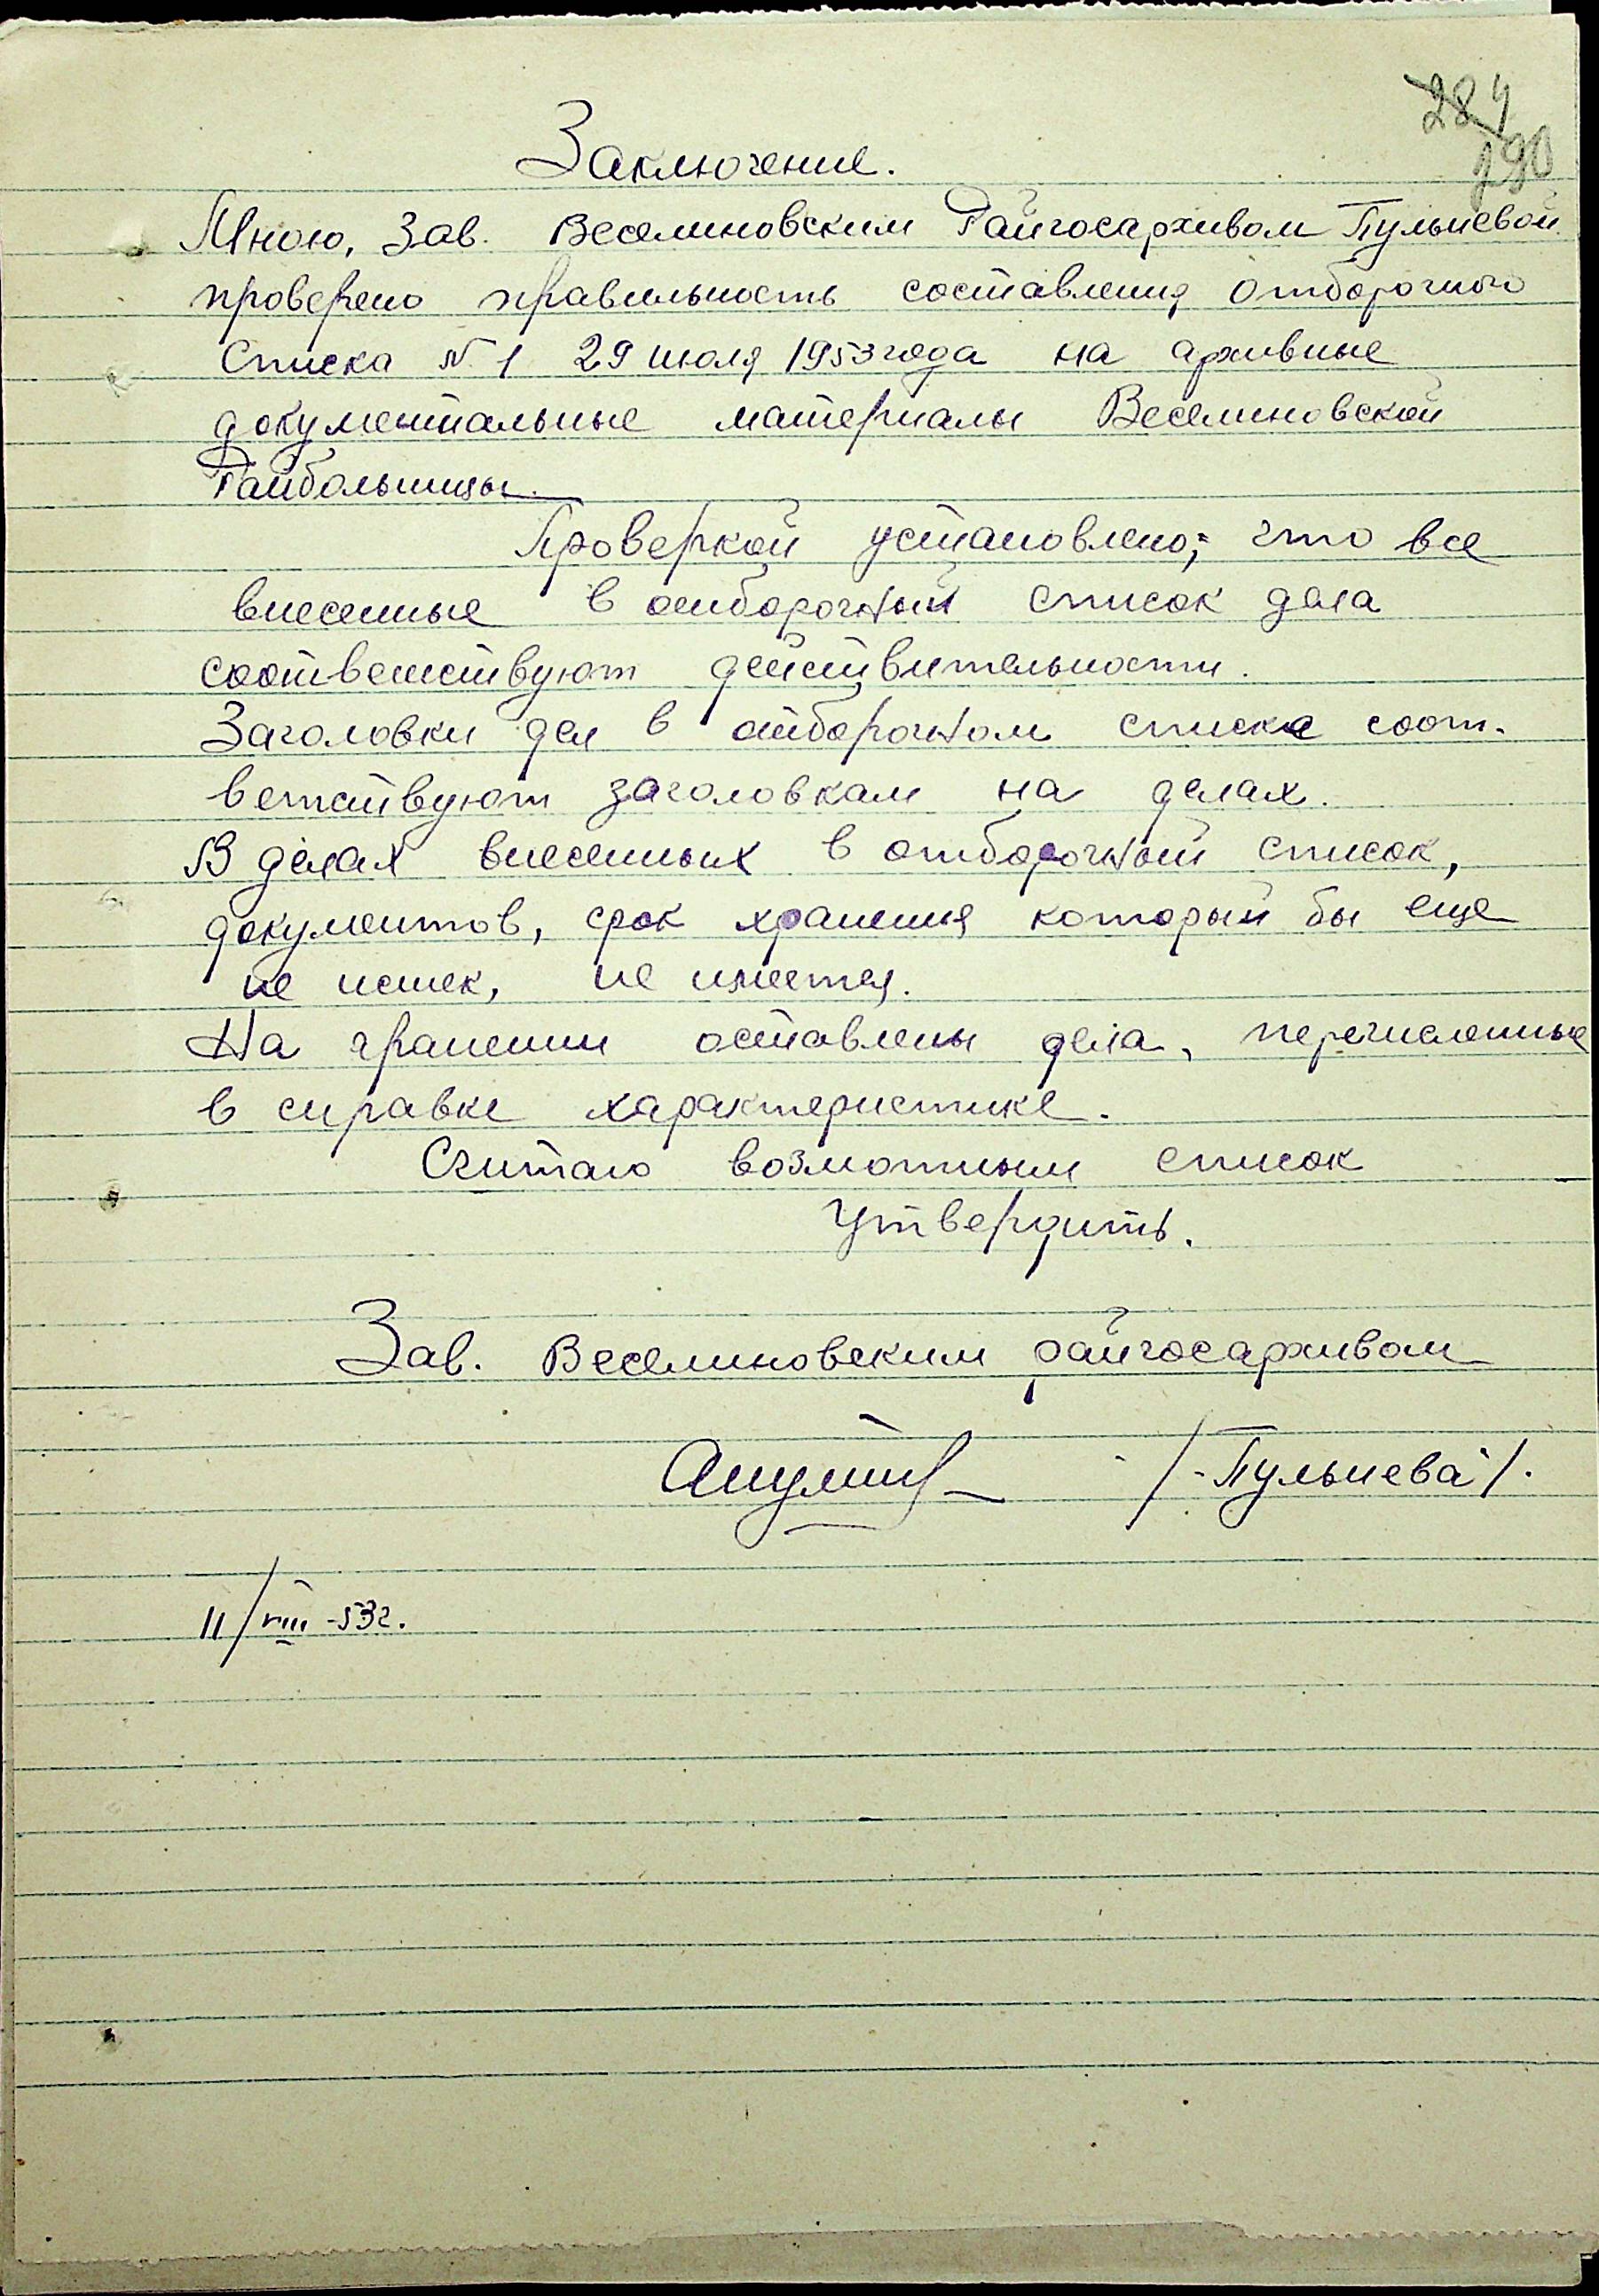 284
290
Заключение.
Мною, Зав. Веселиновским Райгосархивом Пульневой
проверено правильность составления отборочного
Списка № 1 29 июля 1953 года на архивные
документальные материалы Веселиновской
Райбольницы.
Проверкой установлено; что все
внесенные в отборочный список дела
соответствуют действительности.
Заголовки дел в отборочном списке соот-
ветствуют заголовкам на делах.
В делах внесенных в отборочный список,
документов, срок хранения который бы еще
не истек, не имеется.
На хранении оставлены дела, перечисленные
в справке характеристике.
Считаю возможным список
Утвердить.
Зав. Веселиновским райгосархивом
/-Пульнева/.
11/VIII-53г.